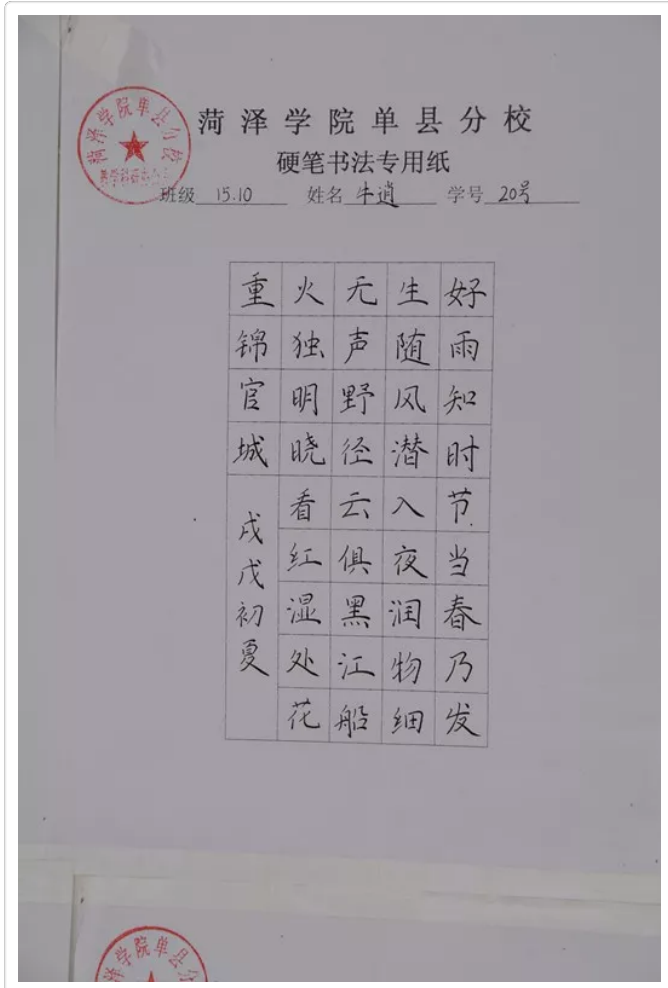 菏泽学院单县分校
菏泽学院单县分校
硬笔书法专用纸
班级 15.10 姓名 牛逍 学号 20号
好雨知时节当春乃发
生随风潜入夜润物细
无声野径云俱黑江船
火独明晓看红湿处花
重锦官城
戌戊初夏
泽学院单县分